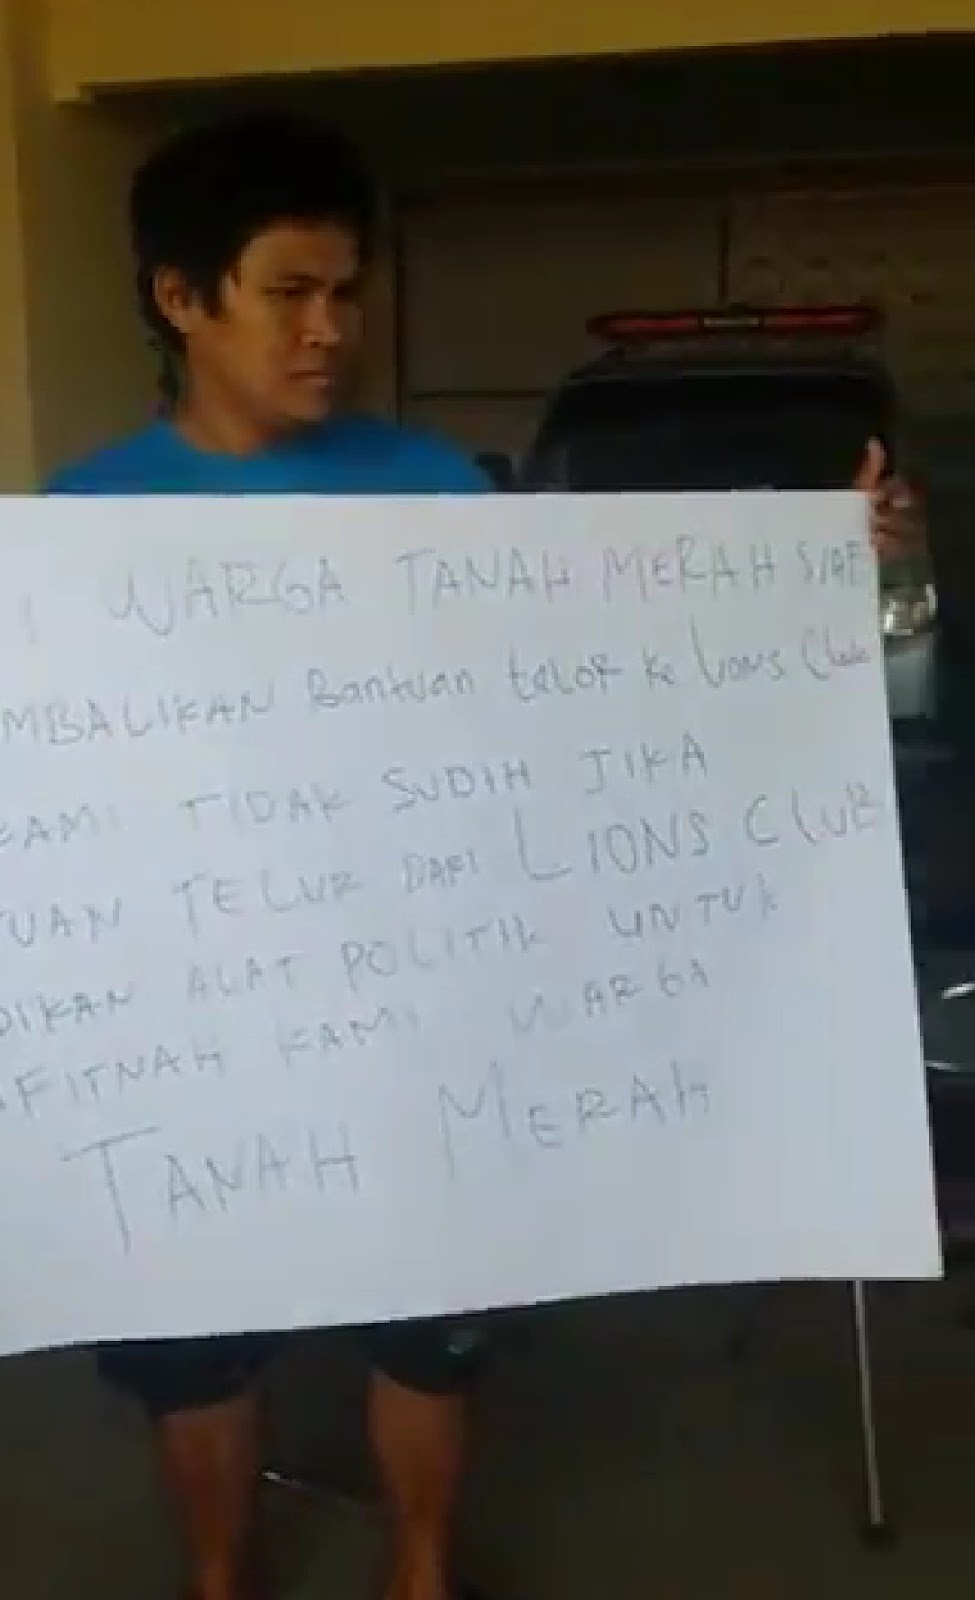 I WARGA TANAH MERAH SIAP
MBALIKAN Bantuan telor Ke Lions Club
KAMI TIDAK SUDIH JIKA
TUAN TELUR DARI LIONS CLUB
DIKAN ALAT POLITIK UNTUK
FITNAH KAMI WARGA
TANAH MERAH